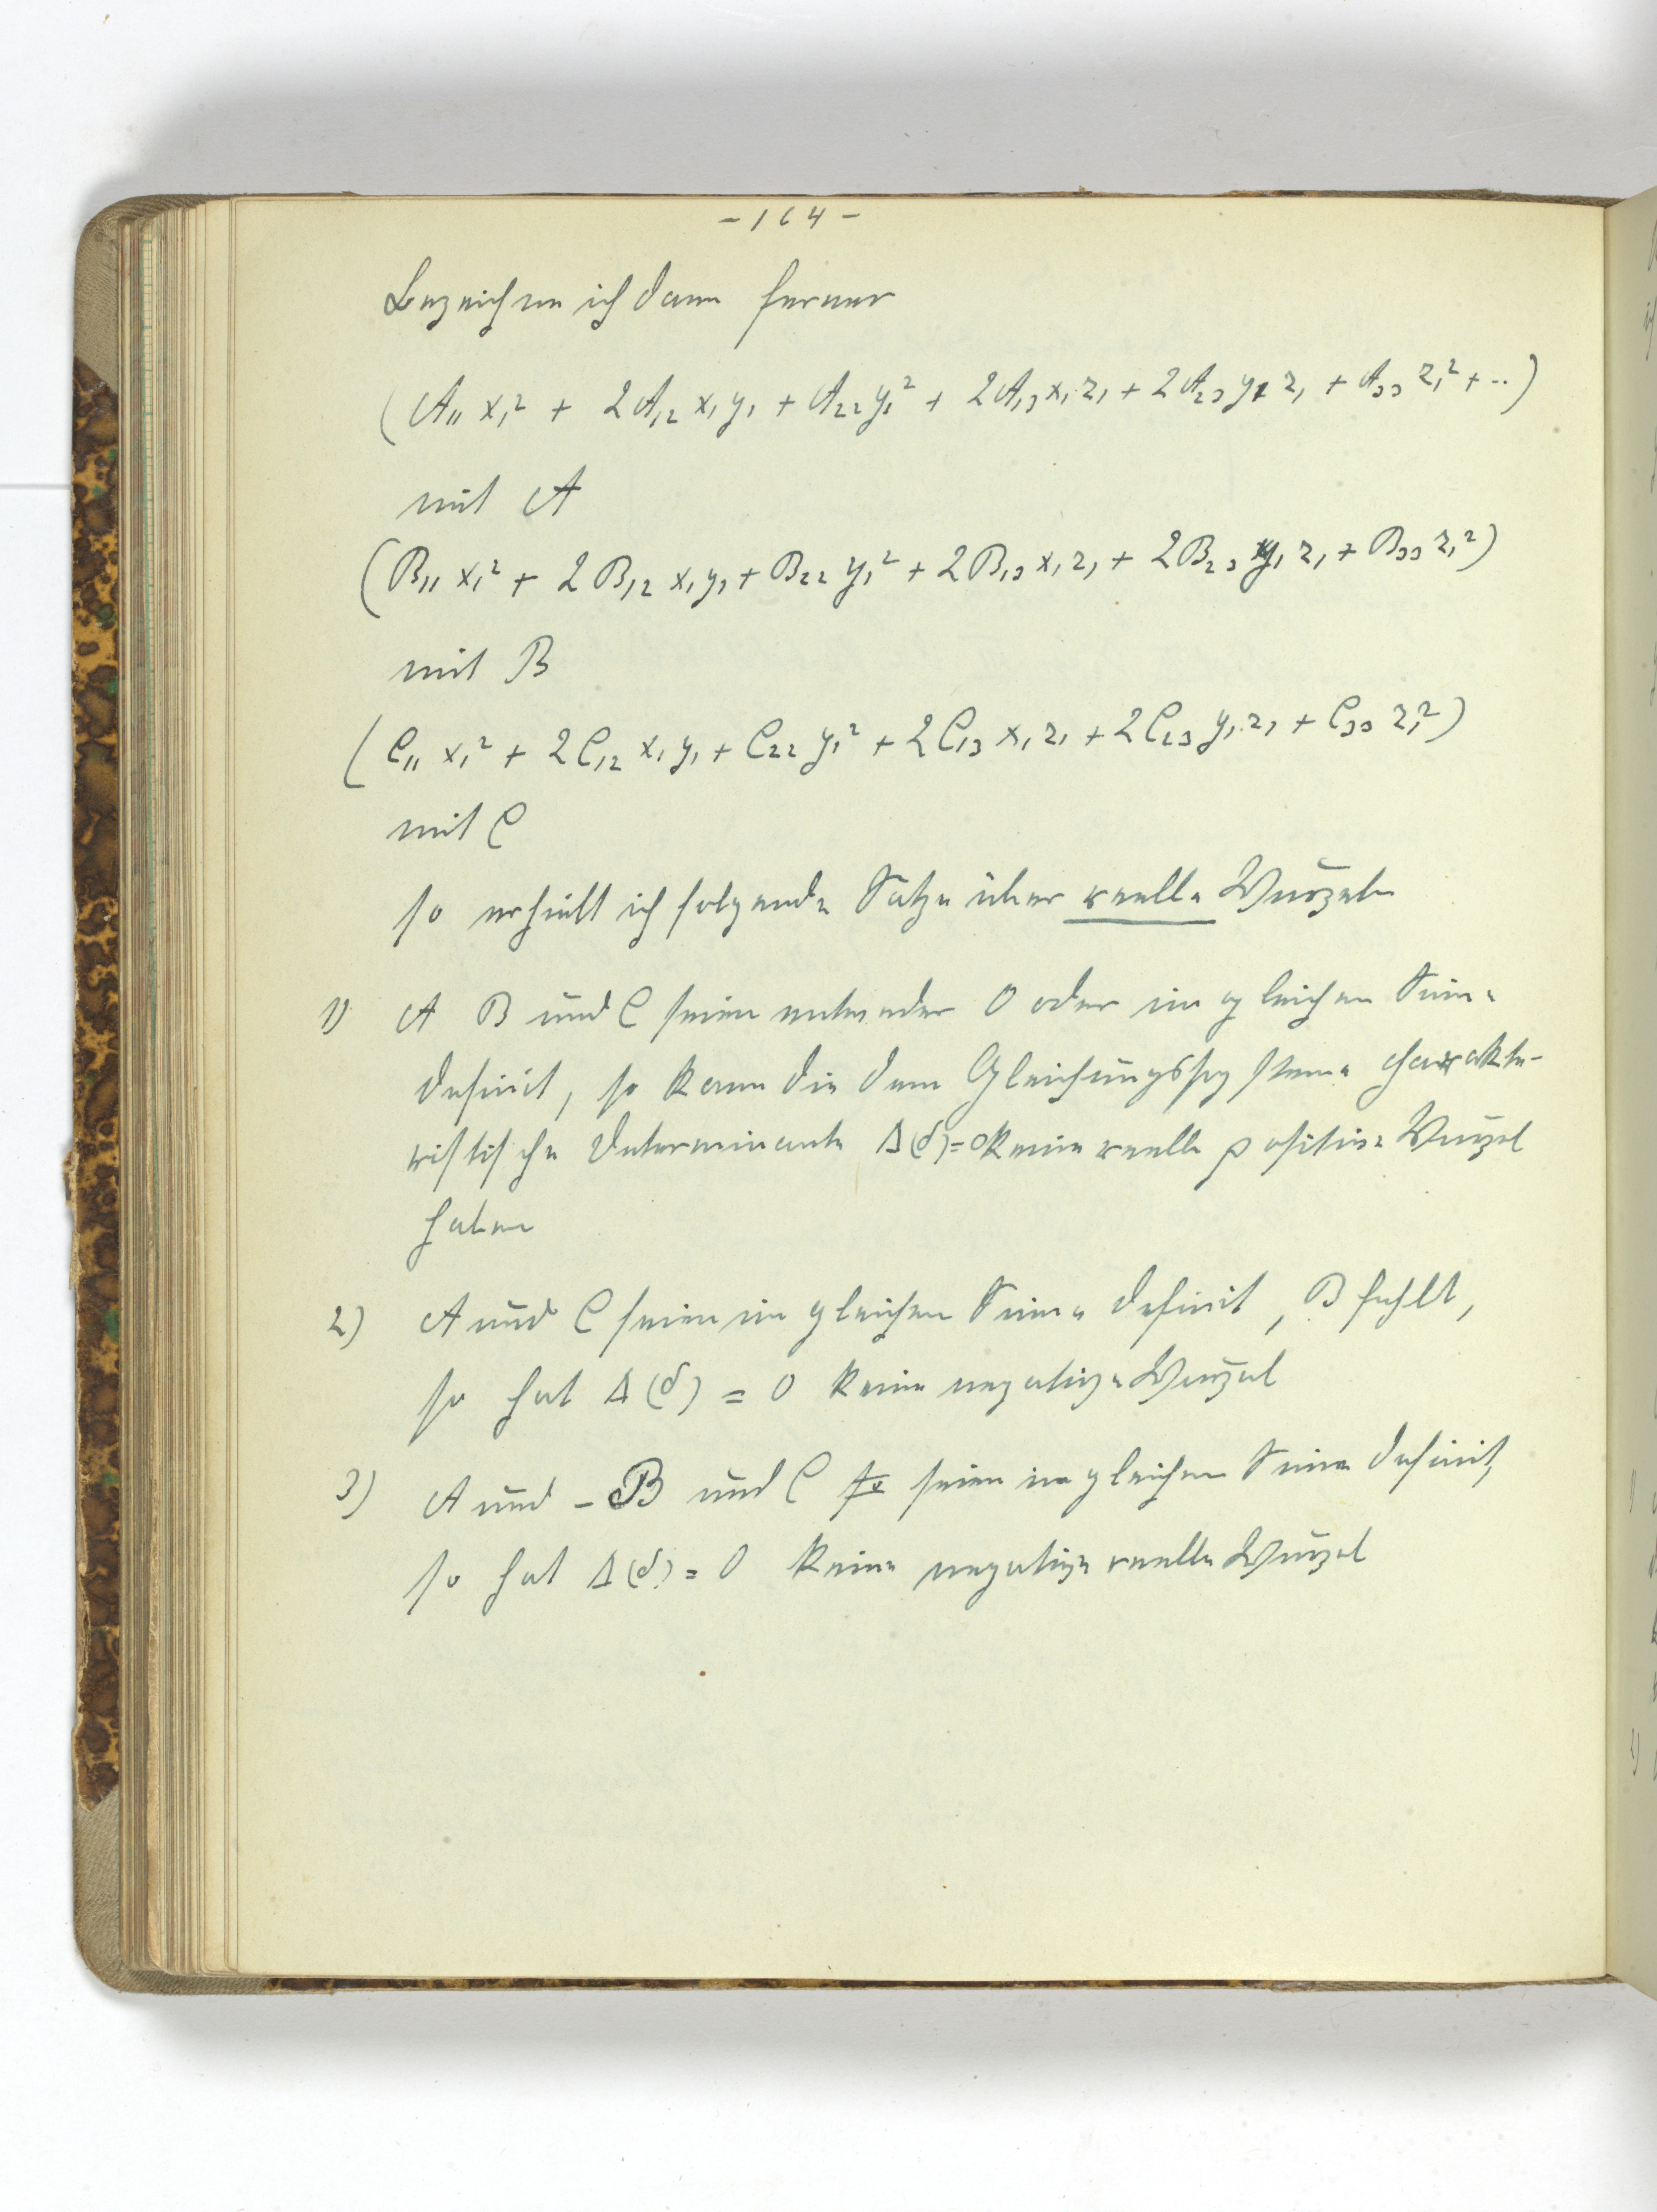 - 164 -
Bezeichne ich dann ferner
(A₁₁ x₁² + 2A₁₂ x₁ y₁ + A₂₂ y₁² + 2A₁₃ x₁ z₁ + 2A₂₃ y₁ z₁ + A₃₃ z₁² + ..)
mit A
(B₁₁ x₁² + 2B₁₂ x₁ y₁ + B₂₂ y₁² + 2B₁₃ x₁ z₁ + 2B₂₃ y₁ z₁ + B₃₃ z₁²)
mit B
(C₁₁ x₁² + 2C₁₂ x₁ y₁ + C₂₂ y₁² + 2C₁₃ x₁ z₁ + 2C₂₃ y₁ z₁ + C₃₃ z₁²)
mit C
so erhielt ich folgende Sätze über reelle Wurzeln
1) A B und C seien entweder 0 oder im gleichen Sinne
definit, so kann die dem Gleichungssysteme charakte-
ristische Determinante Δ(δ)=0 keine reelle positive Wurzel
haben
2) A und C seien im gleichen Sinne definit, B fehlt,
so hat Δ(δ) = 0 keine negative Wurzel
3) A und -B und C seien im gleichen Sinne definit,
so hat Δ(δ) = 0 keine negative reelle Wurzel